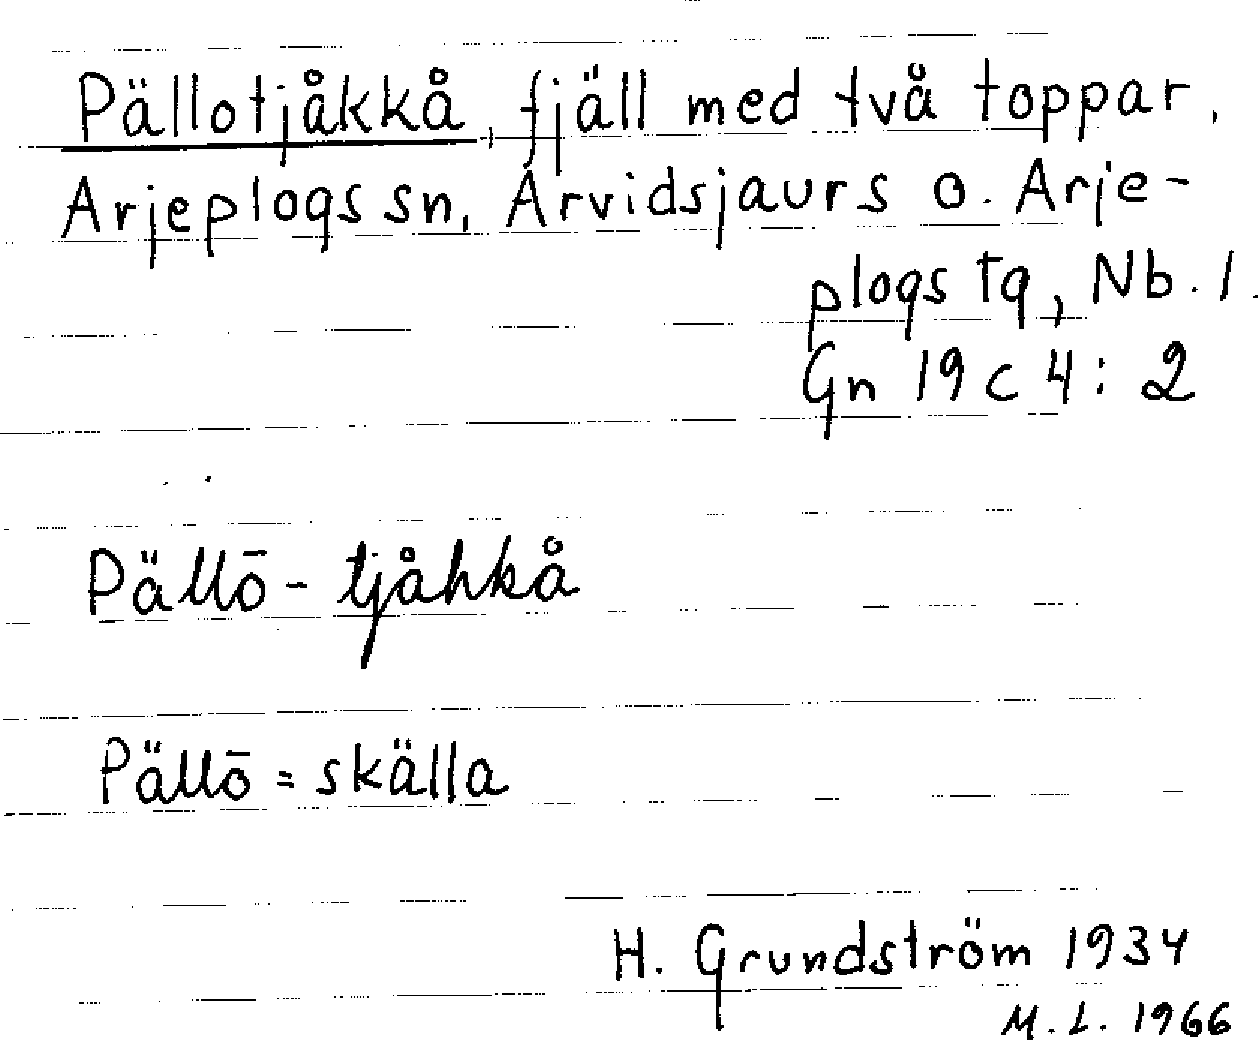 Pällotjåkkå, fjäll med två toppar,
Arjeplogs sn, Arvidsjaurs o. Arje-
plogs tg, Nb. l.
Gn 19 c 4 : 2
Pällō - tjåhkå
Pällō = skälla
H. Grundström 1934
M. L. 1966